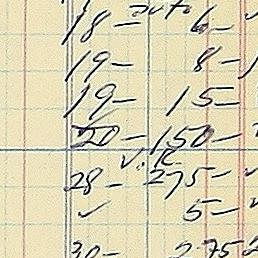 18- auto 6-
19- 8-
19- 15-
20- 150-
V.R.
28- 275-
✓ 5-
30- 275